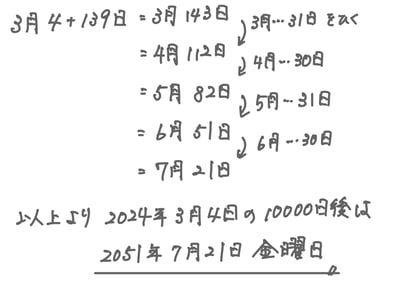 3月4+139日 = 3月143日
3月…31日をひく
= 4月112日
4月…30日
= 5月82日
5月…31日
= 6月51日
6月…30日
= 7月21日
以上より 2024年3月4日の10000日後は
2051年7月21日 金曜日